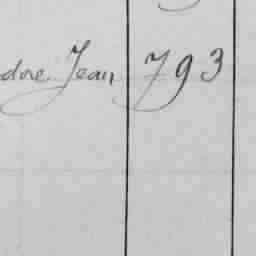 dore Jean 793